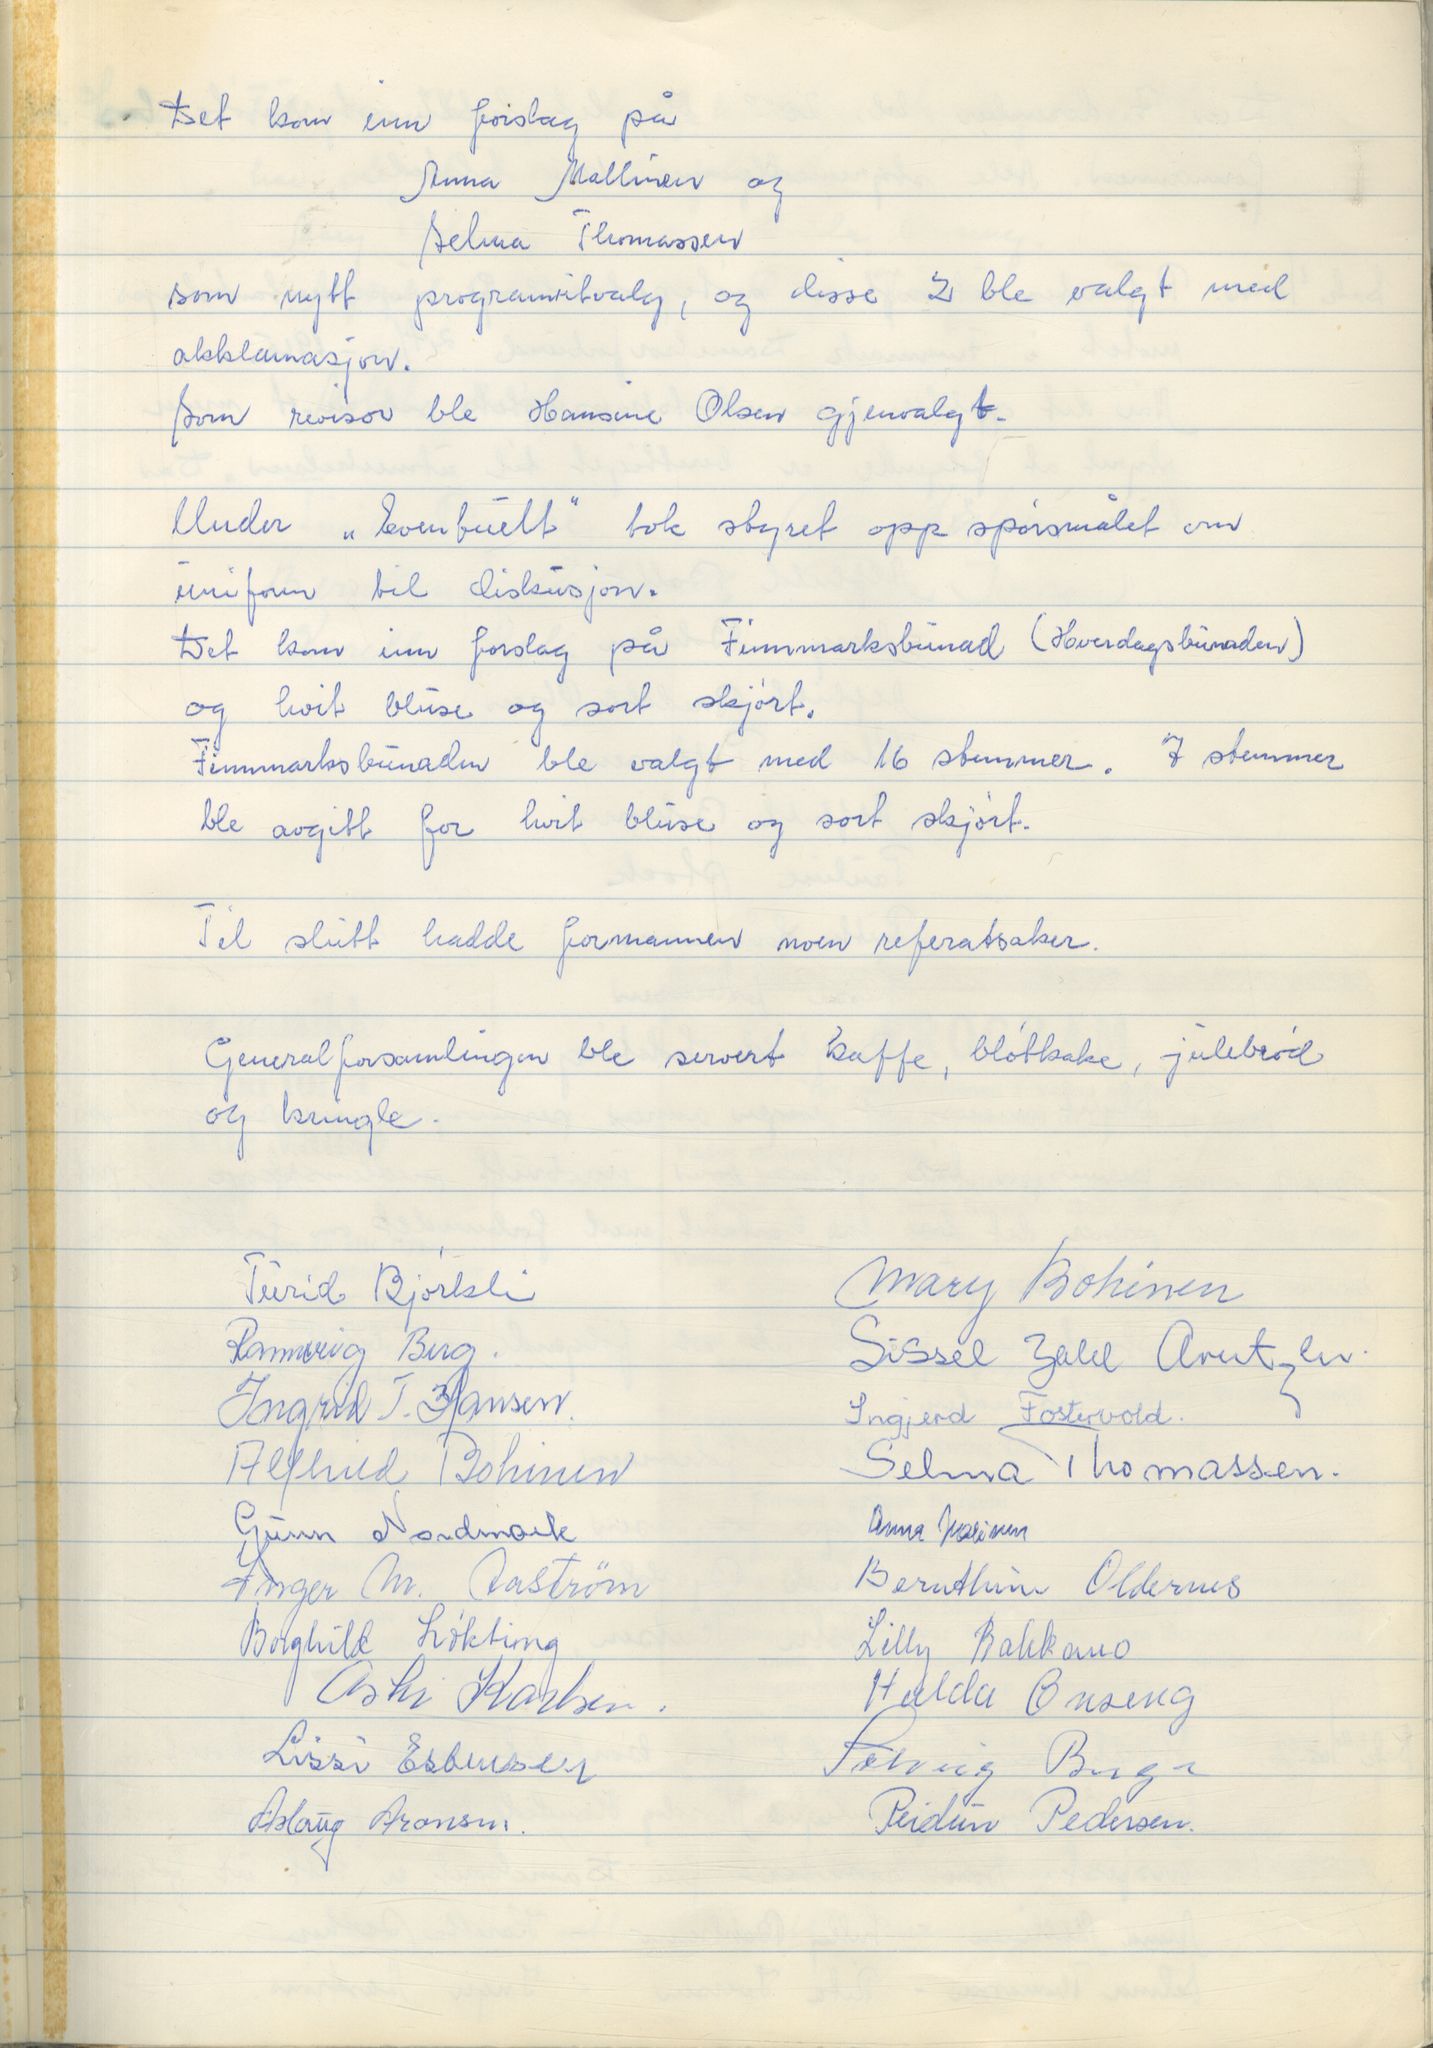 Det kom inn forslag på
Anna Mallinen og
Selma Thomassen
som nytt programutvalg, og disse 2 ble valgt med
akklamasjon.
Som revisor ble Hansine Olsen gjenvalgt.
Under „Eventuelt" tok styret opp spørsmålet om
uniform til diskusjon.
Det kom inn forslag på Finnmarksbunad (Hverdagsbunaden)
og hvit bluse og sort skjørt.
Finnmarksbunaden ble valgt med 16 stemmer. 7 stemmer
ble avgitt for hvit bluse og sort skjørt.
Til slutt hadde formannen noen referatsaker.
Generalforsamlingen ble servert kaffe, bløtkake, julebrød
og kringle.
Turid Bjørkli
Mary Bohinen
Rannveig Berg.
Sissel
Ingrid T. Hansen.
Ingjerd Fostervold.
Alfhild Bohinen
Selma Thomassen.
Gunn Nordmark
Anna
Inger M. Aaström
Bernthine Oldernes
Borghild Løkting
Lilly Bakkano
Karlsen.
Hulda Onseng
Lissi Esbensen
Solveig
Aslaug Aronsen.
Reidun Pedersen.